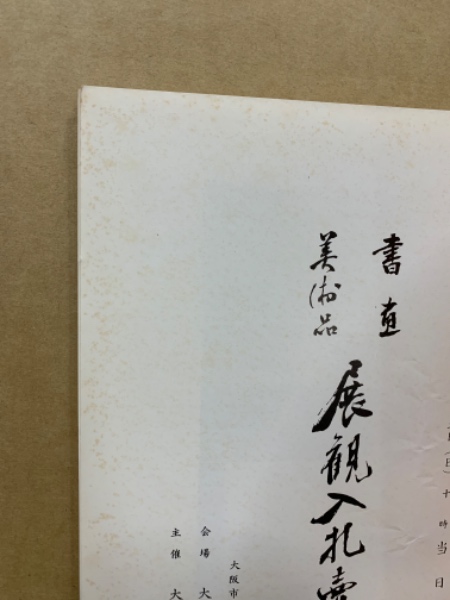 (日)十時
当日
書画
美術品
展観入札売
大阪市
会場 大
主催 大